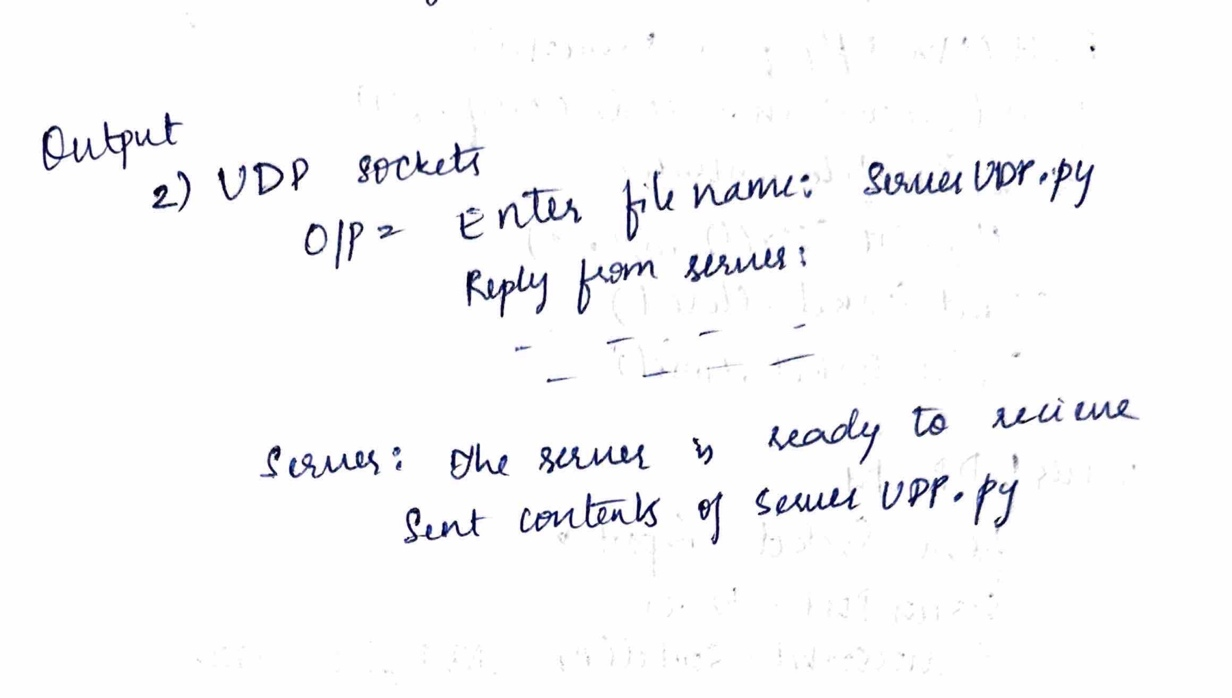 Output
2) UDP sockets
O/P = Enter file name: ServerUDP.py
Reply from server:
- - - -
- - -
Server: The server is ready to recieve
Sent contents of server UDP.py